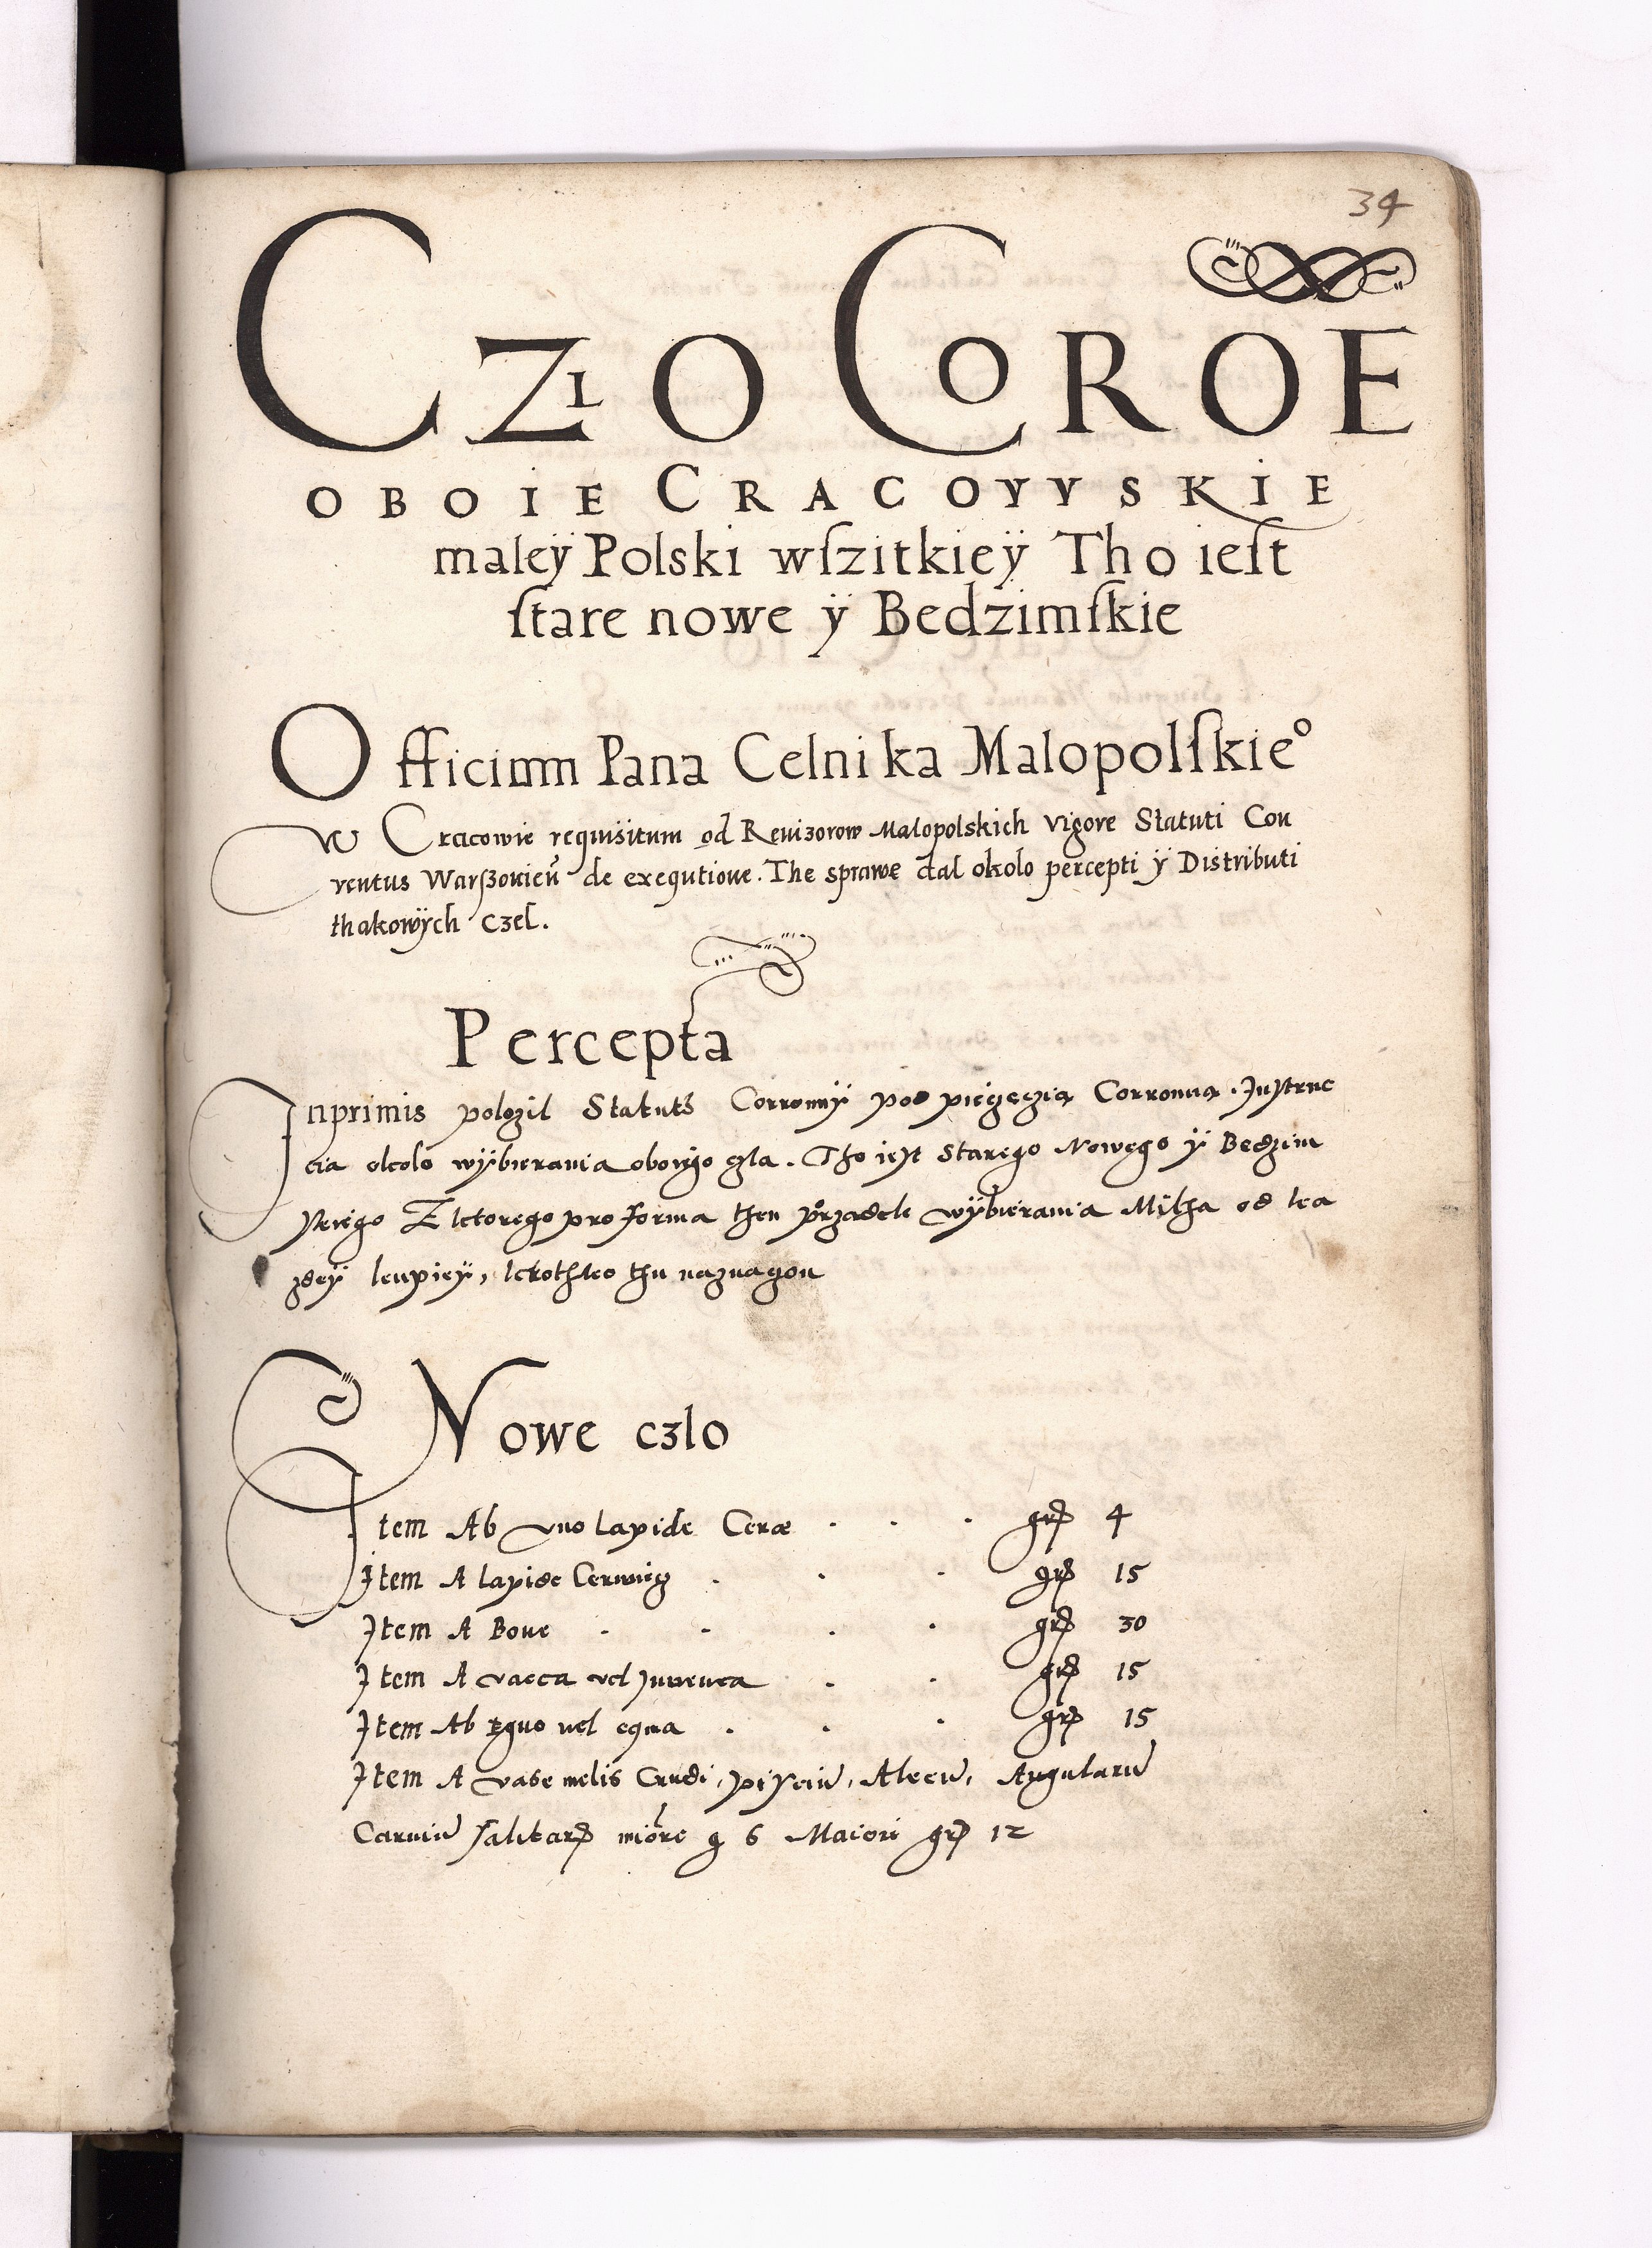 34
CZŁO COROE
OBOIE CRACOVVSKIE
maleÿ Polski wſzitkieÿ Tho ieſt
ſtare nowe ÿ Bedzimſkie
Officium Pana Celnika Malopolſkie°
W Cracowie requisitum od Reuizorow Malopolskich vigore Statuti Con
uentus Warszouien̄ de exequtione. The sprawe dal okolo percepti ÿ Distributi
thakowÿch czel.
Percepta
Inprimis polozil Statuts Corronnÿ pod pieczęczią Corronną. Instruc
cia okolo wÿbierania oboiego czla. Tho iest Starego Nowego ÿ Bedzim
skiego Z ktorego pro forma then przadek wÿbierania Mitha od ka
zdeÿ kupieÿ, krothko thu naznaczon
Nowe czlo
Item Ab vno Lapide Ceræ . . . grꝭ 4
Item A lapide Cerwiecz . . . grꝭ 15
Item A Boue . . . . grꝭ 30
Item A vacca vel Juuenca . . grꝭ 15
Item Ab Equo uel equa . . . grꝭ 15
Item A vase melis Crudi, pisciū, Alecū, Angularū
Carniū salitarꝭ miōre g 6 Maiori grꝭ 12